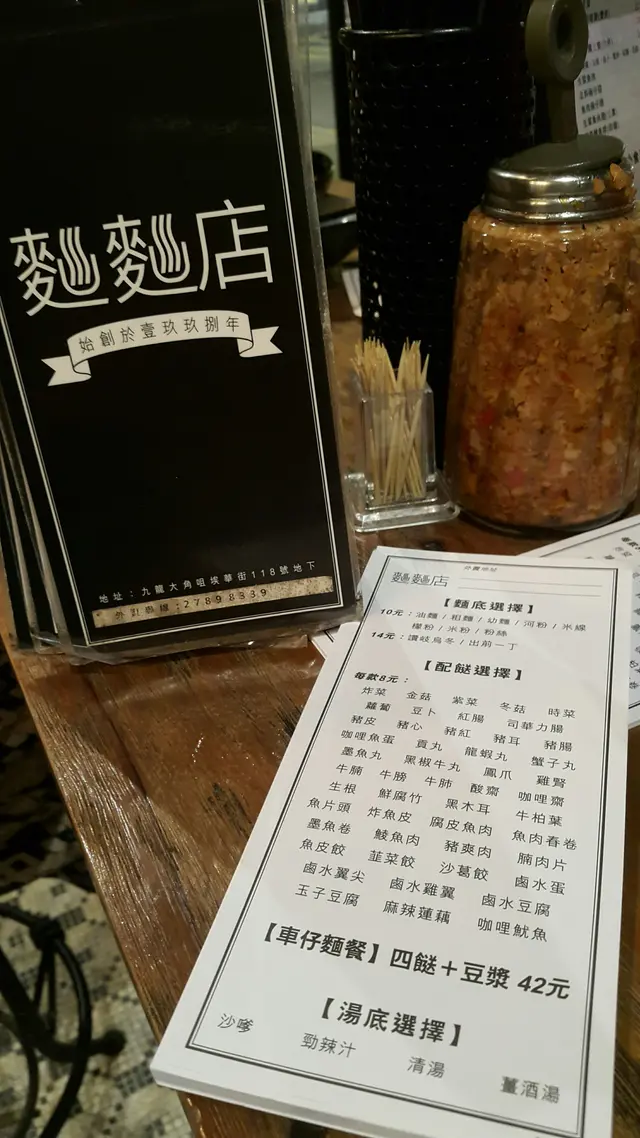 麵麵店
始創於壹玖玖捌年
地址：九龍大角咀埃華街118號地下
外賣專線：27898339
外賣地址
麵麵店
【麵底選擇】
10元：油麵 / 粗麵 / 幼麵 / 河粉 / 米線
檬粉 / 米粉 / 粉絲
14元：讚岐烏冬 / 出前一丁
【配餸選擇】
每款8元：
炸菜 金菇 紫菜 冬菇 時菜
蘿蔔 豆卜 紅腸 司華力腸
豬皮 豬心 豬紅 豬耳 豬腸
咖哩魚蛋 貢丸 龍蝦丸 蟹子丸
墨魚丸 黑椒牛丸 鳳爪 雞腎
牛腩 牛膀 牛肺 酸齋 咖哩齋
生根 鮮腐竹 黑木耳 牛柏葉
魚片頭 炸魚皮 腐皮魚肉 魚肉春卷
墨魚卷 鯪魚肉 豬爽肉 腩肉片
魚皮餃 韮菜餃 沙葛餃 鹵水蛋
鹵水翼尖 鹵水雞翼 鹵水豆腐
玉子豆腐 麻辣蓮藕 咖哩魷魚
【車仔麵餐】四餸＋豆漿 42元
【湯底選擇】
沙嗲 勁辣汁 清湯 薑酒湯